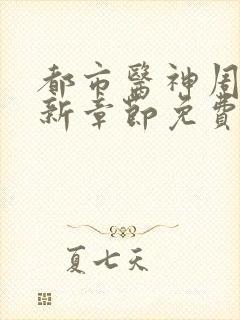 都市醫神周
新章節免費
夏七天